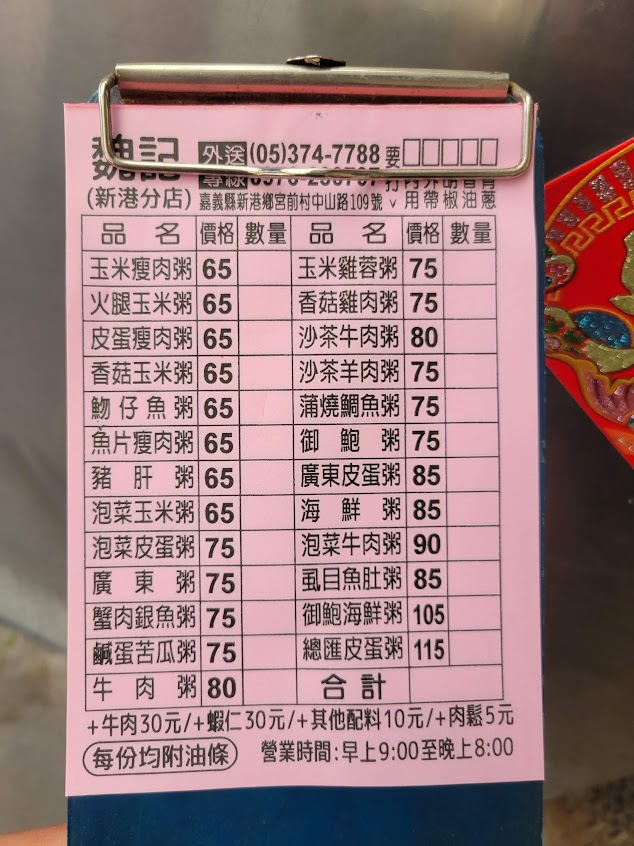 魏記 外送 (05)374-7788 要□□□□□
專線
打內外胡香青
(新港分店) 嘉義縣新港鄉宮前村中山路109號 ˇ 用帶椒油蔥
品名 價格 數量 品名 價格 數量
玉米瘦肉粥 65 玉米雞蓉粥 75
火腿玉米粥 65 香菇雞肉粥 75
皮蛋瘦肉粥 65 沙茶牛肉粥 80
香菇玉米粥 65 沙茶羊肉粥 75
魩仔魚粥 65 蒲燒鯛魚粥 75
魚片瘦肉粥 65 御鮑粥 75
豬肝粥 65 廣東皮蛋粥 85
泡菜玉米粥 65 海鮮粥 85
泡菜皮蛋粥 75 泡菜牛肉粥 90
廣東粥 75 虱目魚肚粥 85
蟹肉銀魚粥 75 御鮑海鮮粥 105
鹹蛋苦瓜粥 75 總匯皮蛋粥 115
牛肉粥 80 合計
+牛肉30元/+蝦仁30元/+其他配料10元/+肉鬆5元
每份均附油條 營業時間:早上9:00至晚上8:00